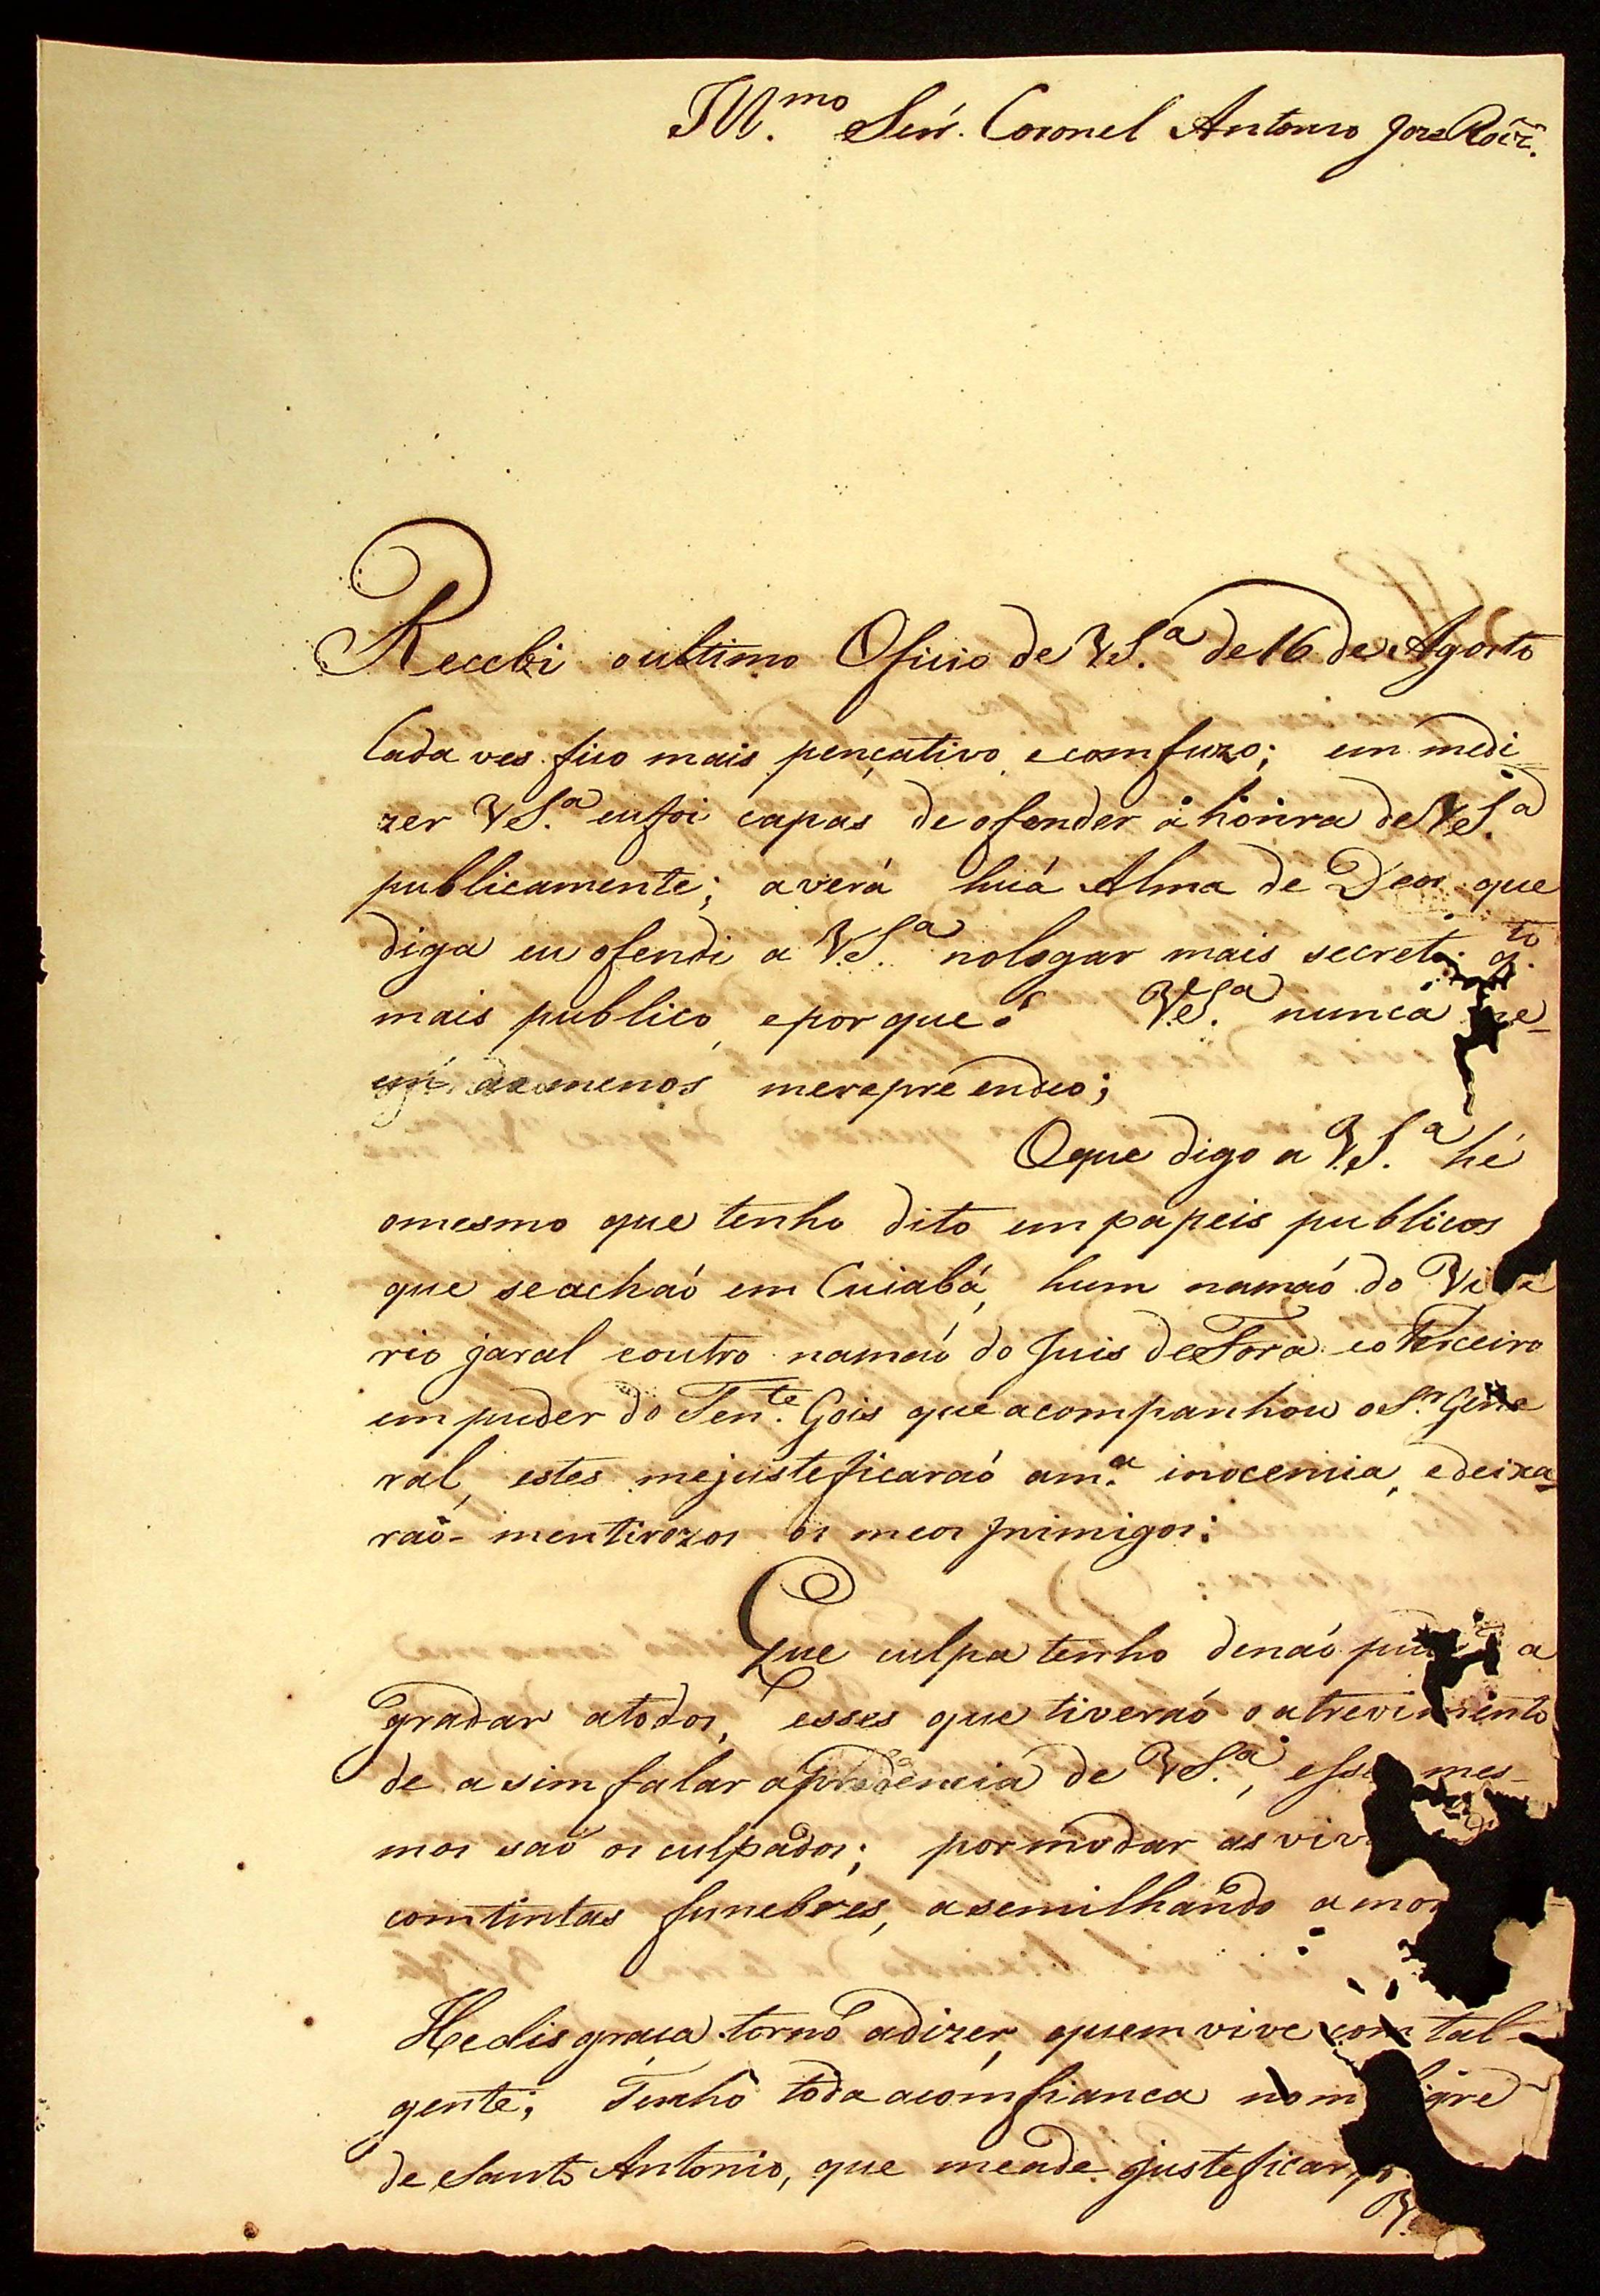 Ill.mo Senr. Coronel Antonio Joze Roiz.
Recebi oultimo Oficio de VS.a de 16 de Agosto
Cada ves fico mais pençativo, ecomfuzo; em medi
zer VS.a eufoi capas de ofender á honra de VS.a
publicamente; averá huá Alma de Deos que
diga eu ofendi a VS.a nologar mais secreto q.to
mais publico, eporque? VS.a nunca
aomenos merepreendeo;
Oque digo a VS.a hé
omesmo que tenho dito em papeis publicos
que seachaó em Cuiabá, hum namaó do
rio jaral eoutro namaó do Juis deFora eo Terceiro
em puder do Ten.te Gois que acompanhou oS.r Gene
ral, estes mejusteficaraó am.a inocencia, edeixa
raõ- mentirozos os meos Inimigos:
Que culpa tenho denaó a
gradar atodos, esses que tiveraó oatrevimento
de asim falar aprudencia de VS.a, mes-
mos saó os culpados; pormudar as
comtintas funebres, asemilhando
Hedisgraça torno adizer, quemvive com tal
gente; Tenho toda acomfianca
de Santo Antonio, que meade justeficar